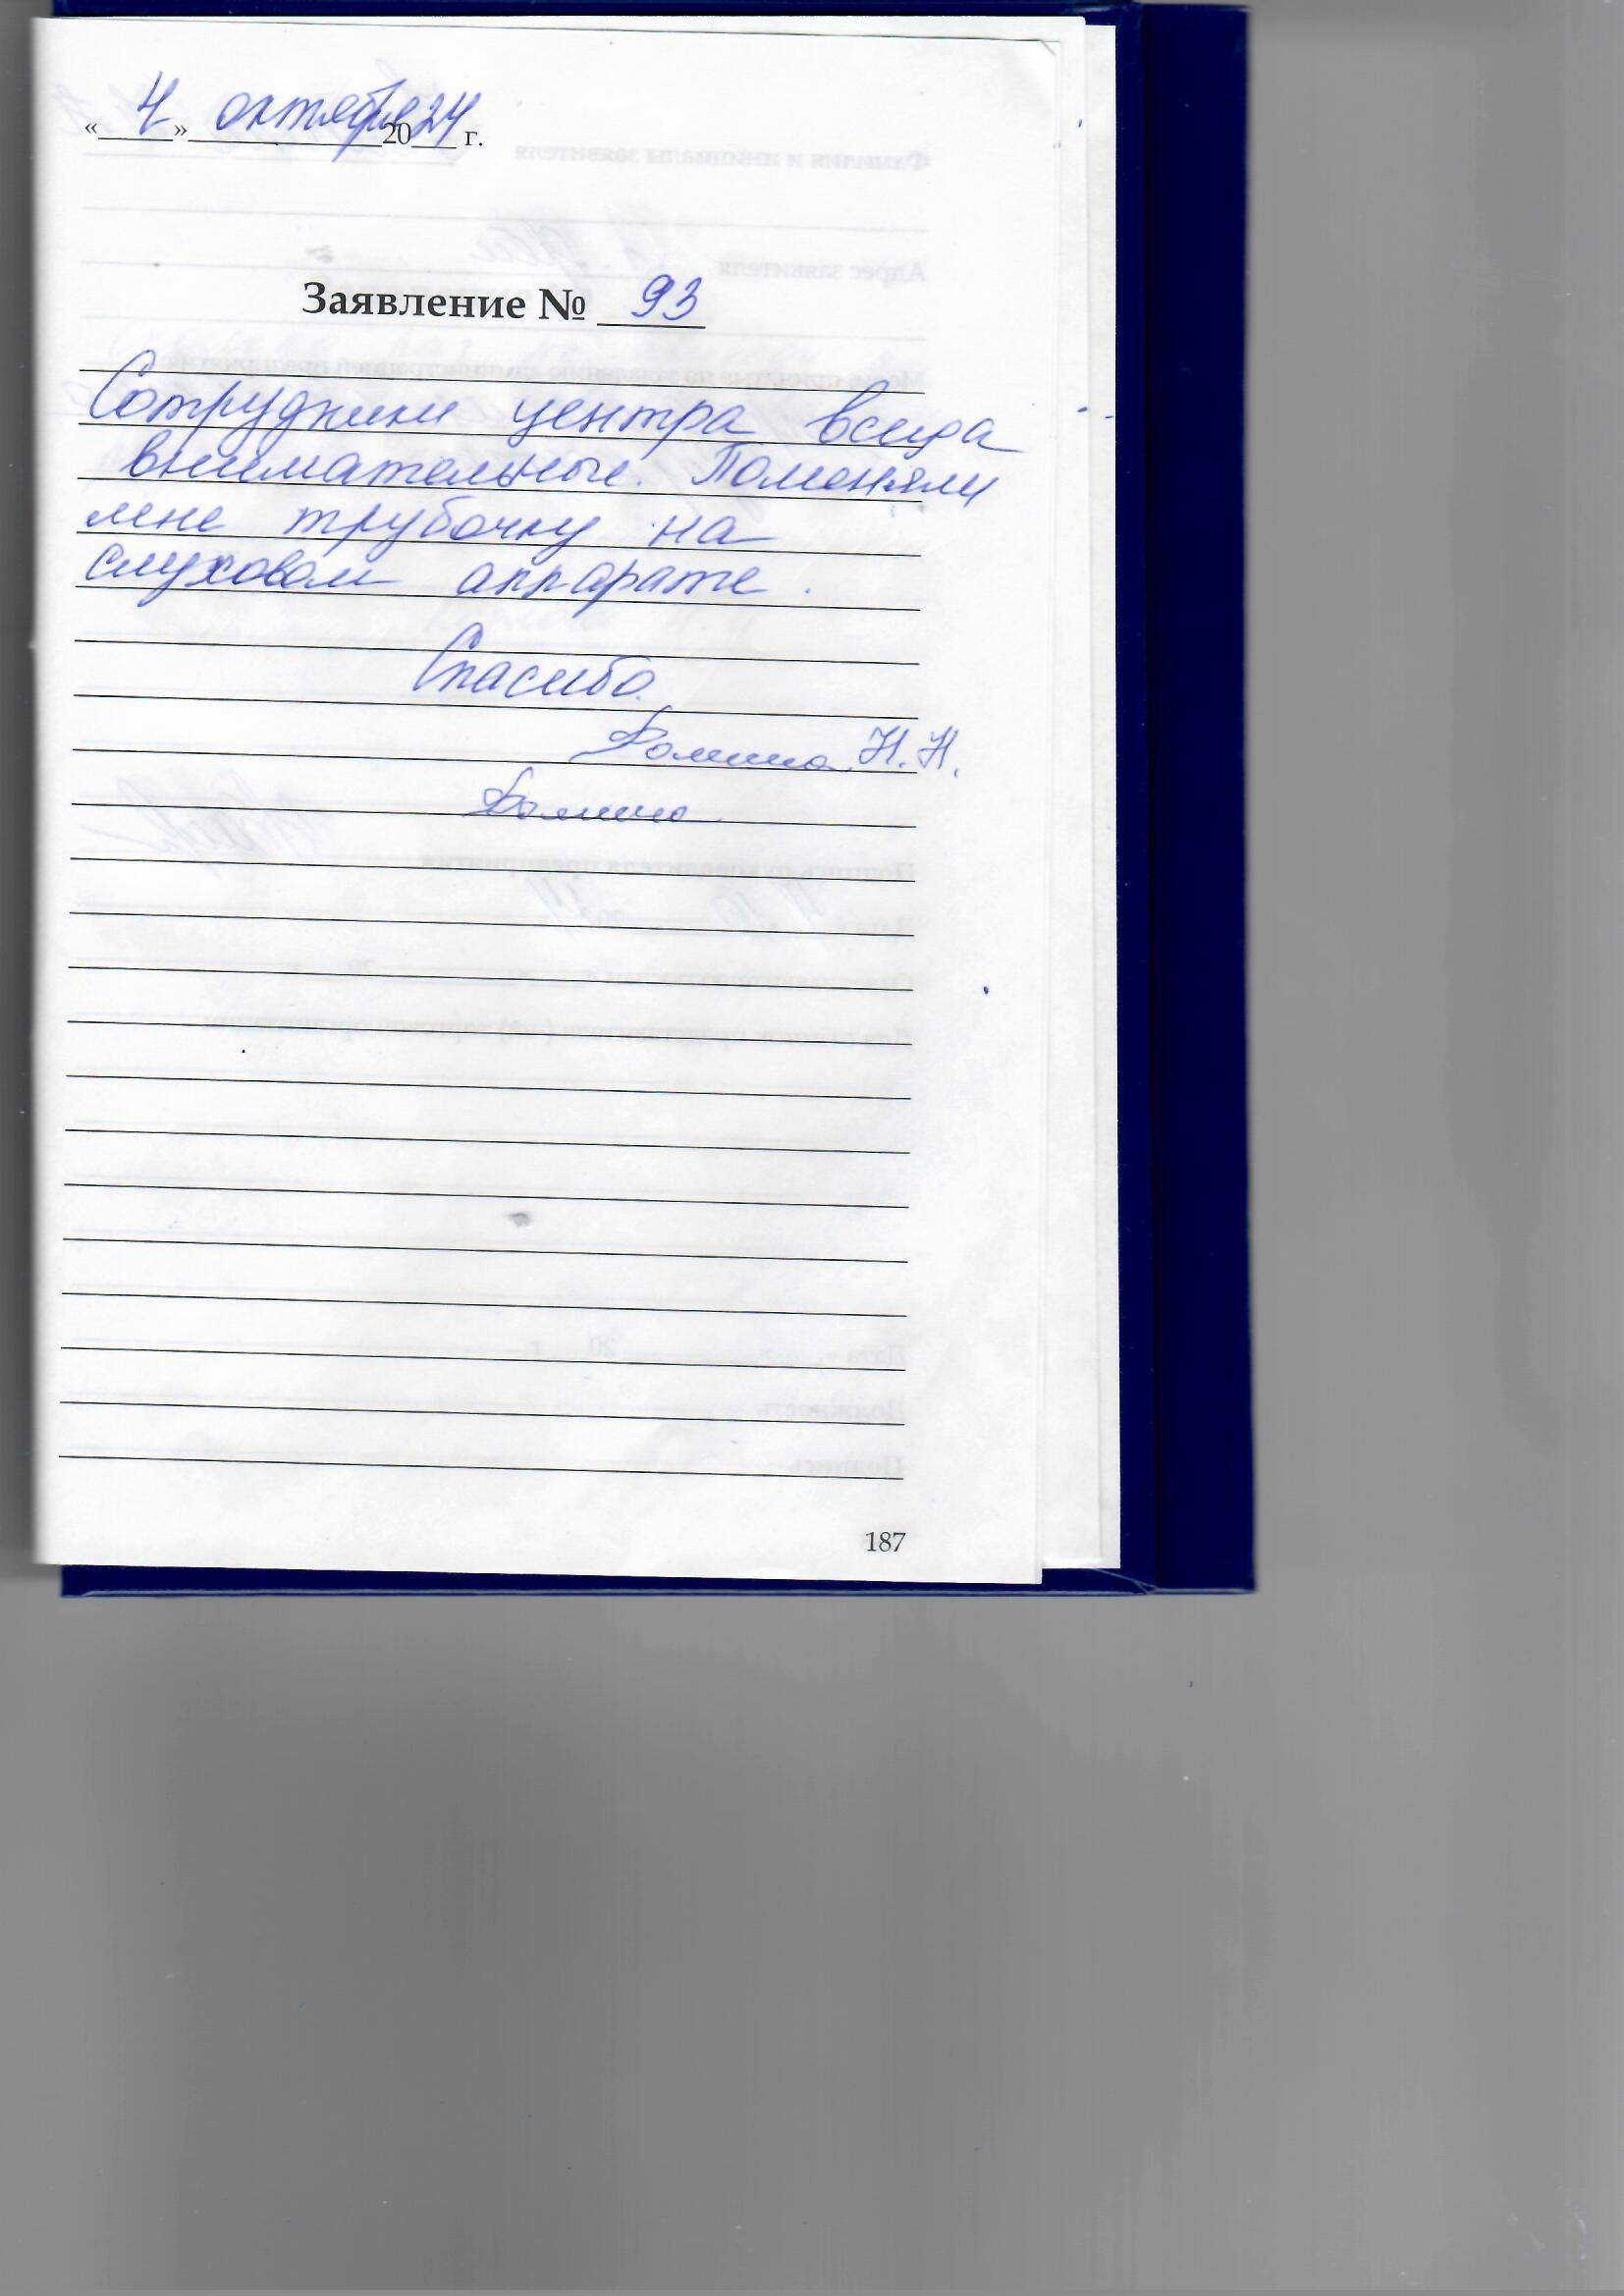 « 4 » октября 2024 г.
Заявление № 93
Сотрудники центра всегда
внимательные. Поменяли
мне трубочку на
слуховом аппарате.
Спасибо.
Н. Н.
187